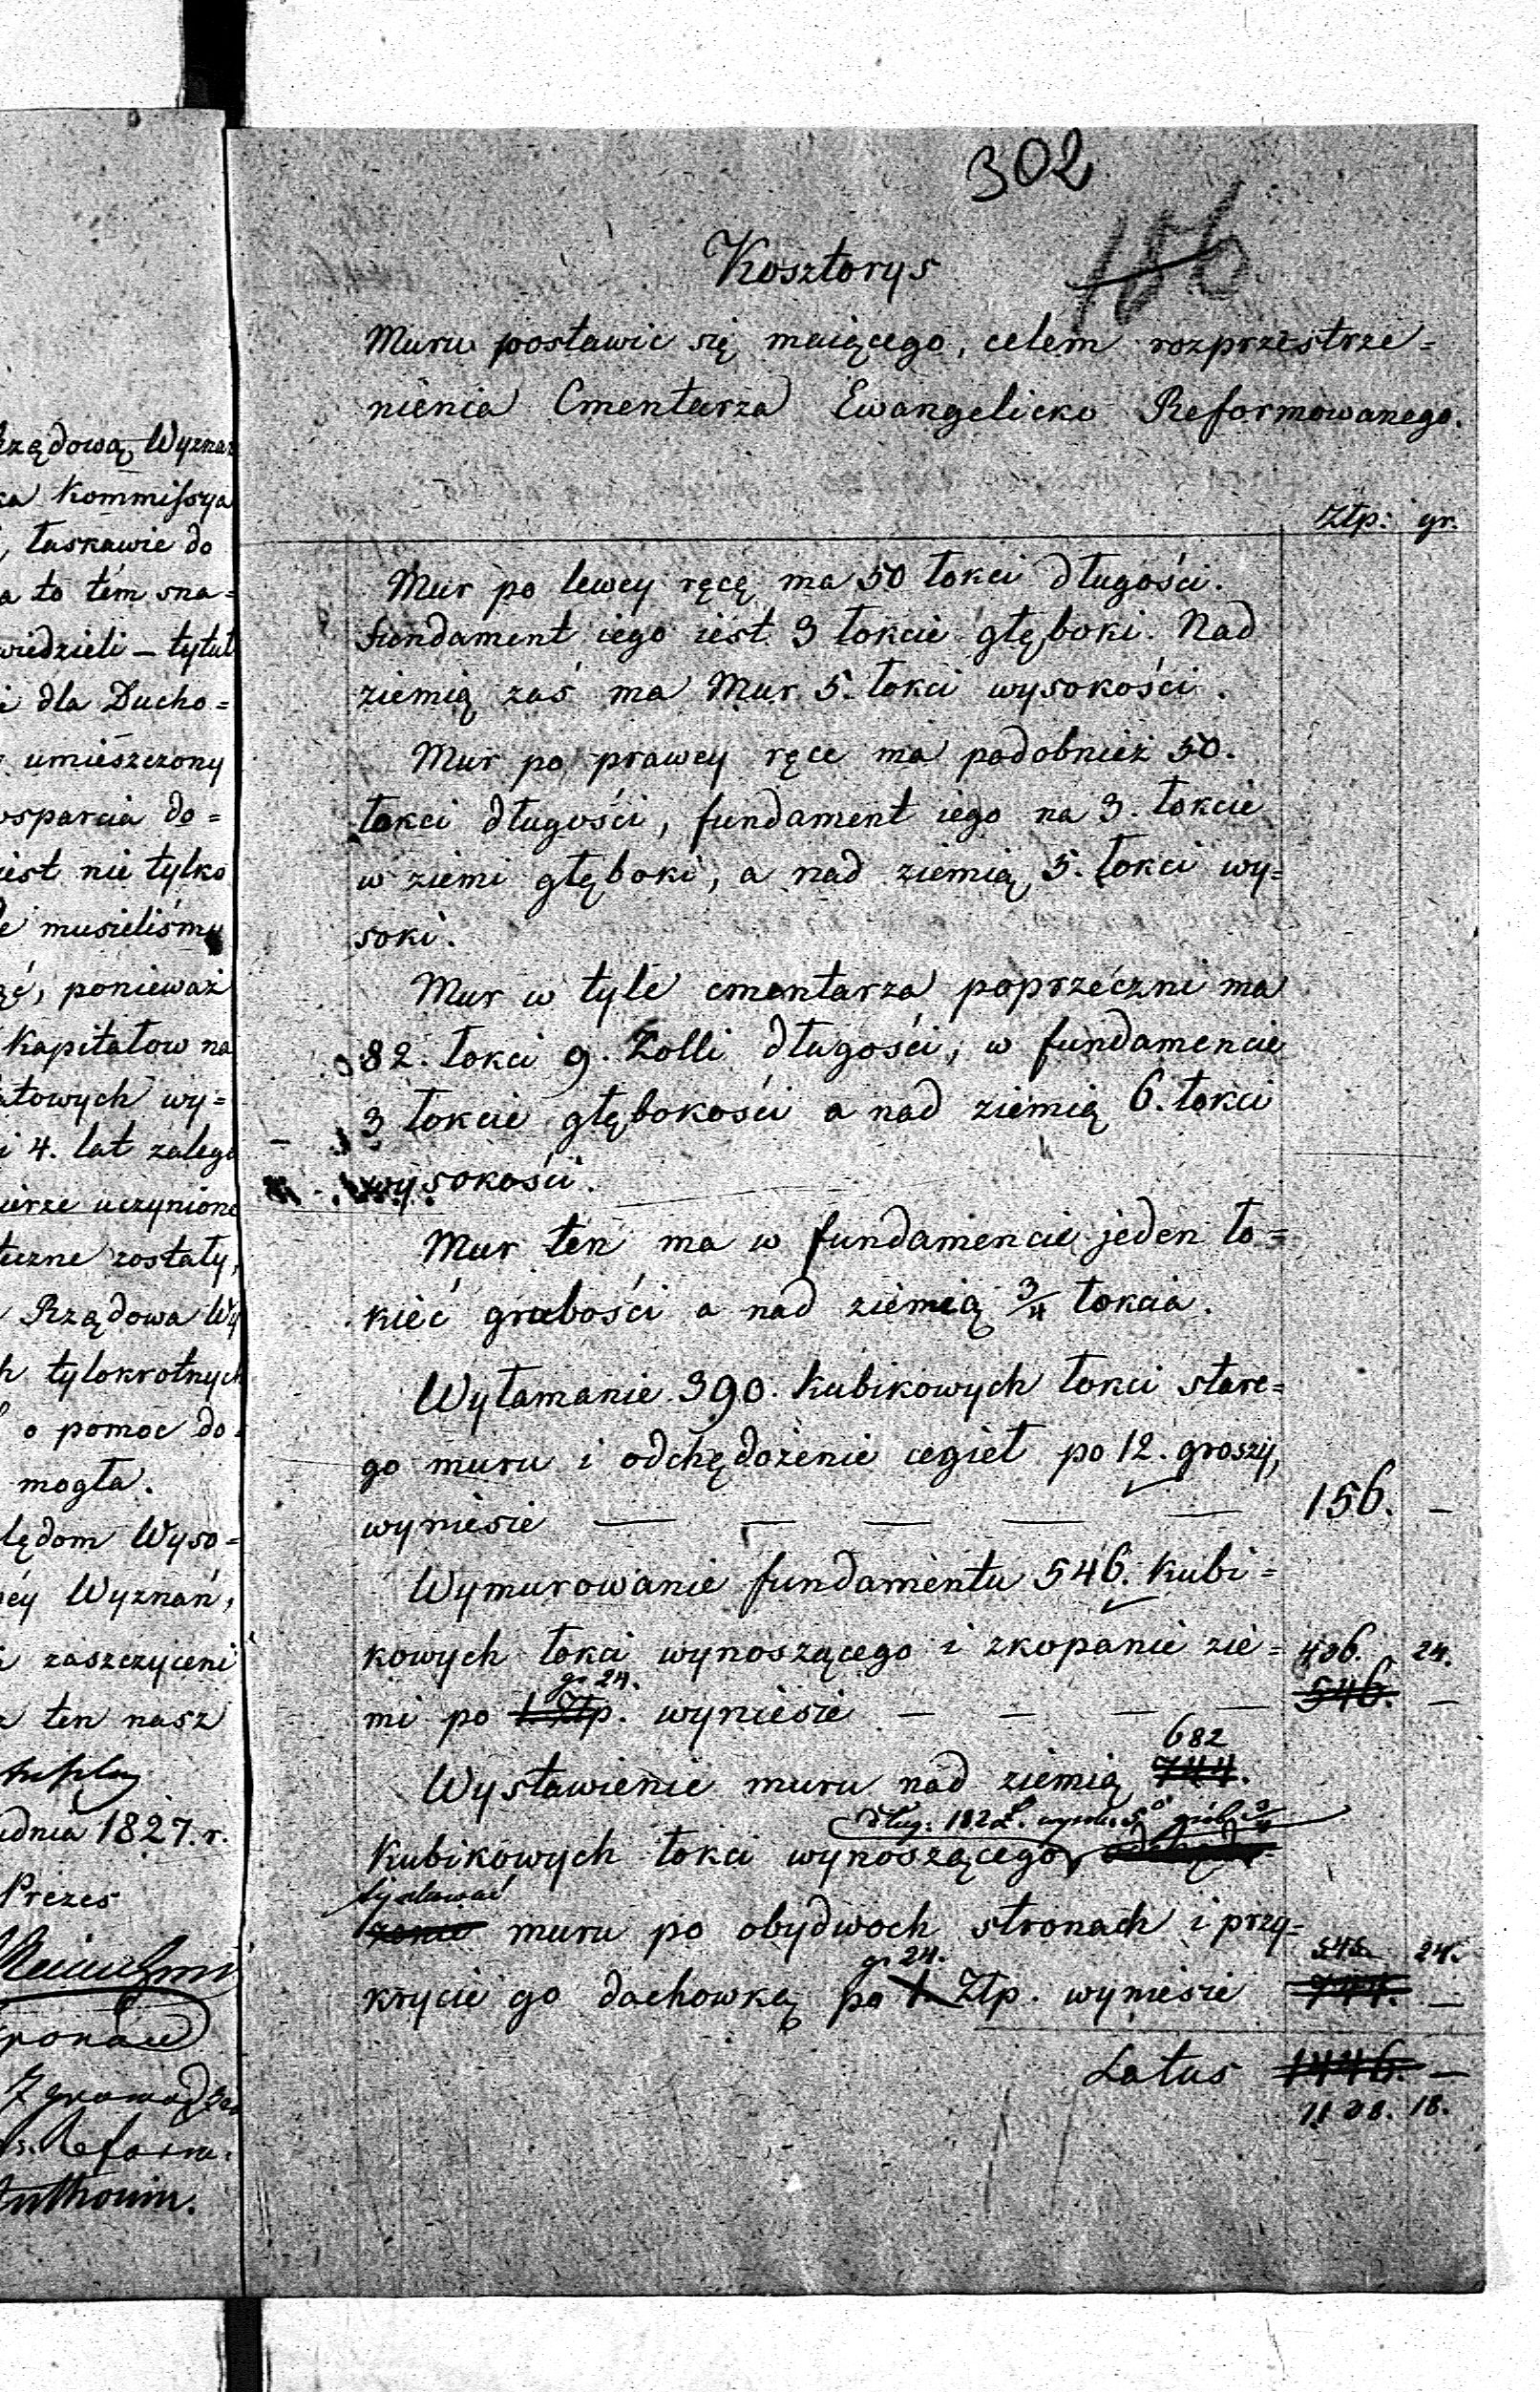 302
156
Kosztorys
Muru postawic się maiącego, celem rozprzestrze=
nienia Cmentarza Ewangelicko Reformowanego.
Złp: gr.
Mur po lewey ręcę ma 50 łokci długości.
fundament iego iest 3 łokcie głęboki. Nad
ziemią zaś ma Mur 5. łokci wysokości.
Mur po prawey ręce ma podobnież 50.
łokci długości, fundament iego na 3. łokcie
w ziemi głęboki, a nad ziemią 5. łokci wy=
soki.
Mur w tyle cmentarza poprzeczni ma
82. łokci 9. Zolli długości, w fundamencie
3 łokcie głębokości a nad ziemią 6. łokci
wysokości.
Mur ten ma w fundamencie jeden ło=
kieć grubości a nad ziemią 3/4 łokcia.
Wyłamanie 390. Kubikowych łokci stare=
go muru i odchędożenie cegieł po 12. groszy,
wyniesie — — — — — 156. —
Wymurowanie fundamentu 546. Kubi=
kowych łokci wynoszącego i zkopanie zie= 436. 24.
gr 24.
mi po 1 Złp. wyniesie — — — — 546. —
682
Wystawienie muru nad ziemią 744.
dług: 182 Ł. wysok. 5 grub 3/4
Kubikowych łokci wynoszącego,
żenie muru po obydwoch stronach i przy=
gr 24. 545. 24.
krycie go dachowką po 1. Złp. wyniesie 744. —
Latus 1446. —
1138. 18.
rządową Wyznań
ka Kommissya
, łaskawie do
a to tém zna=
wiedzieli — tytuł
i dla Ducho=
umieszczony
wsparcia do=
iest nie tylko
le musieliśmy
ąć, ponieważ
Kapitałow na
atowych wy=
i 4. lat zaleg
ierze uczynione
teczne zostały,
Rządowa Wy
h tylokrotnych
o pomoc do=
mogła.
lędom Wyso=
cy Wyznań,
i zaszczyceni
z ten nasz
udnia 1827. r.
Prezes